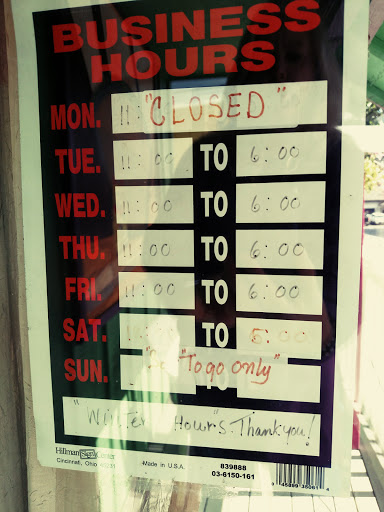 BUSINESS
HOURS
MON. 11: "CLOSED"
TUE. 11:00 TO 6:00
WED. 11:00 TO 6:00
THU. 11:00 TO 6:00
FRI. 11:00 TO 6:00
SAT. TO 5:00
SUN. "To go only"
"Winter Hours". Thank you!
Hillman Center
Cincinnati, Ohio
Made in U.S.A.
839888
03-6150-161